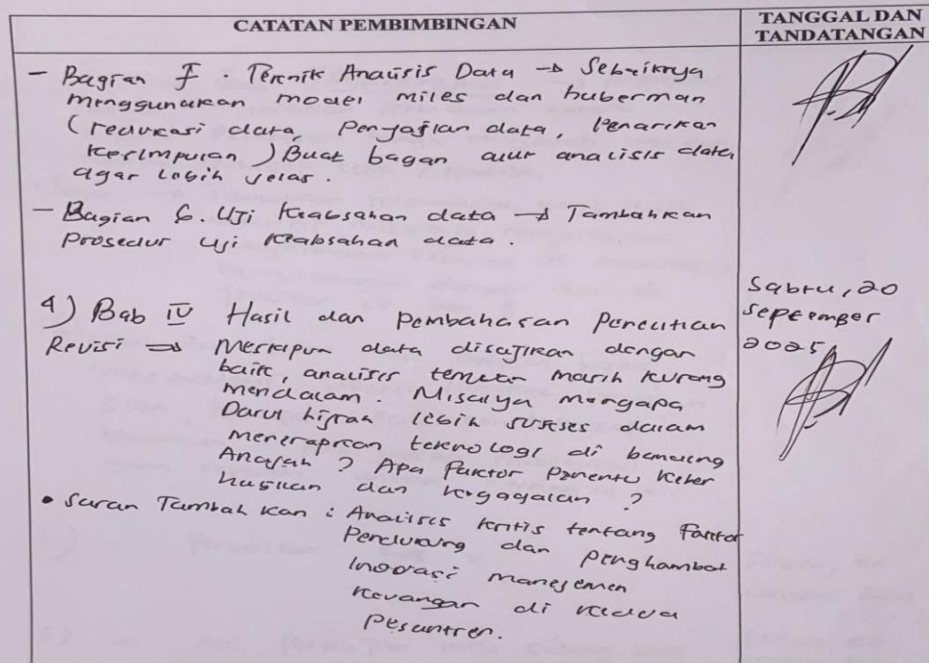 CATATAN PEMBIMBINGAN
TANGGAL DAN
TANDATANGAN
- Bagian F. Teknik Analisis Data → Sebaiknya
menggunakan model miles dan huberman
(redukasi data, Penyajian data, Penarikan
Kesimpulan) Buat bagan alur analisis data
agar lebih jelas.
- Bagian G. Uji Keabsahan data → Tambahkan
Prosedur uji keabsahan data.
4) Bab IV Hasil dan Pembahasan Penelitian
Revisi ⇒ Meskipun data disajikan dengan
baik, analisis temuan masih kurang
mendalam. Misalya mengapa
Darul hijrah lebih sukses dalam
menerapkan teknologi di bending
Anajah? Apa Faktor Penentu Keber
hasilan dan kegagalan?
• Saran Tambah kan : Analisis kritis tentang Faktor
Pendukung dan penghambat
Inovasi manejemen
Keuangan di kedua
Pesantren.
Sabtu, 20
September
2025